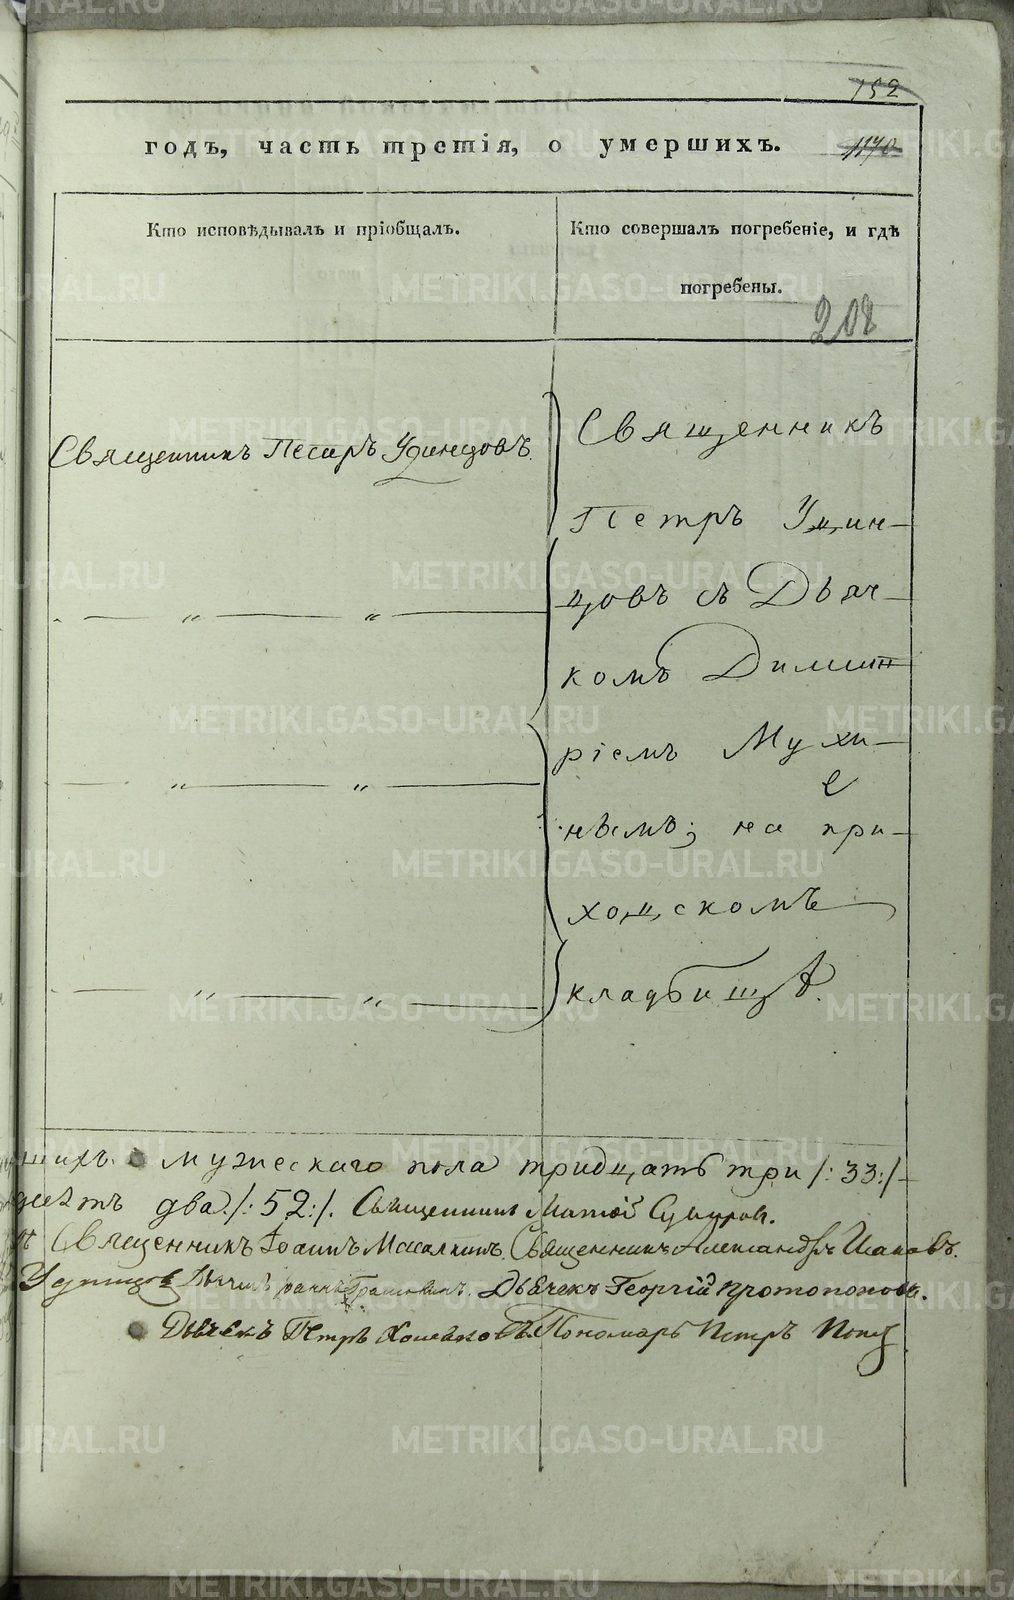 152
годъ, часть третія, о умершихъ.
1170
Кто исповѣдывалъ и пріобщалъ.
Кто совершалъ погребеніе, и гдѣ
погребены.
208
Священникъ Петръ Удинцовъ.
Священникъ
Петръ Удин-
цовъ съ Дьяч-
комъ Димит
ріемъ Мухи-
нымъ; на при-
ходскомъ
кладбищѣ.
шихъ мужескаго пола тридцать три /: 33:/
десятъ два /: 52:/. Священникъ
Священникъ Іоаннъ Священникъ Александръ
Удинцовъ Дьячекъ Георгій Протопоповъ.
Дьячекъ Петръ Пономарь Петръ Поповъ
METRIKI.GASO-URAL.RU